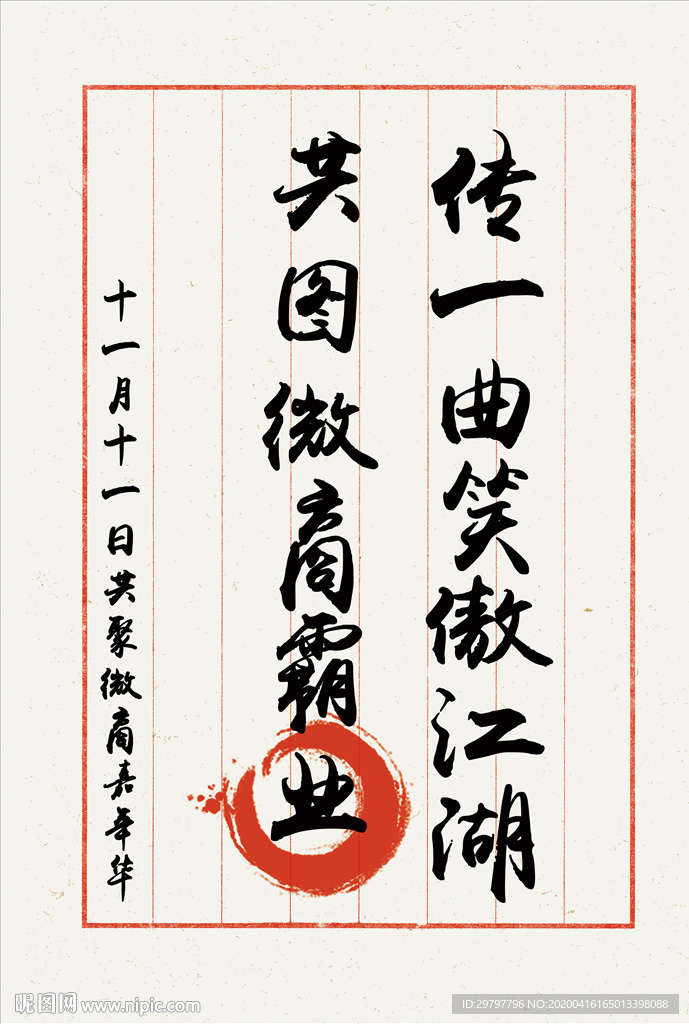 传一曲笑傲江湖
共图微商霸业
十一月十一日共聚微商嘉年华
昵图网 www.nipic.com
ID:29797796 NO:20200416165013398088